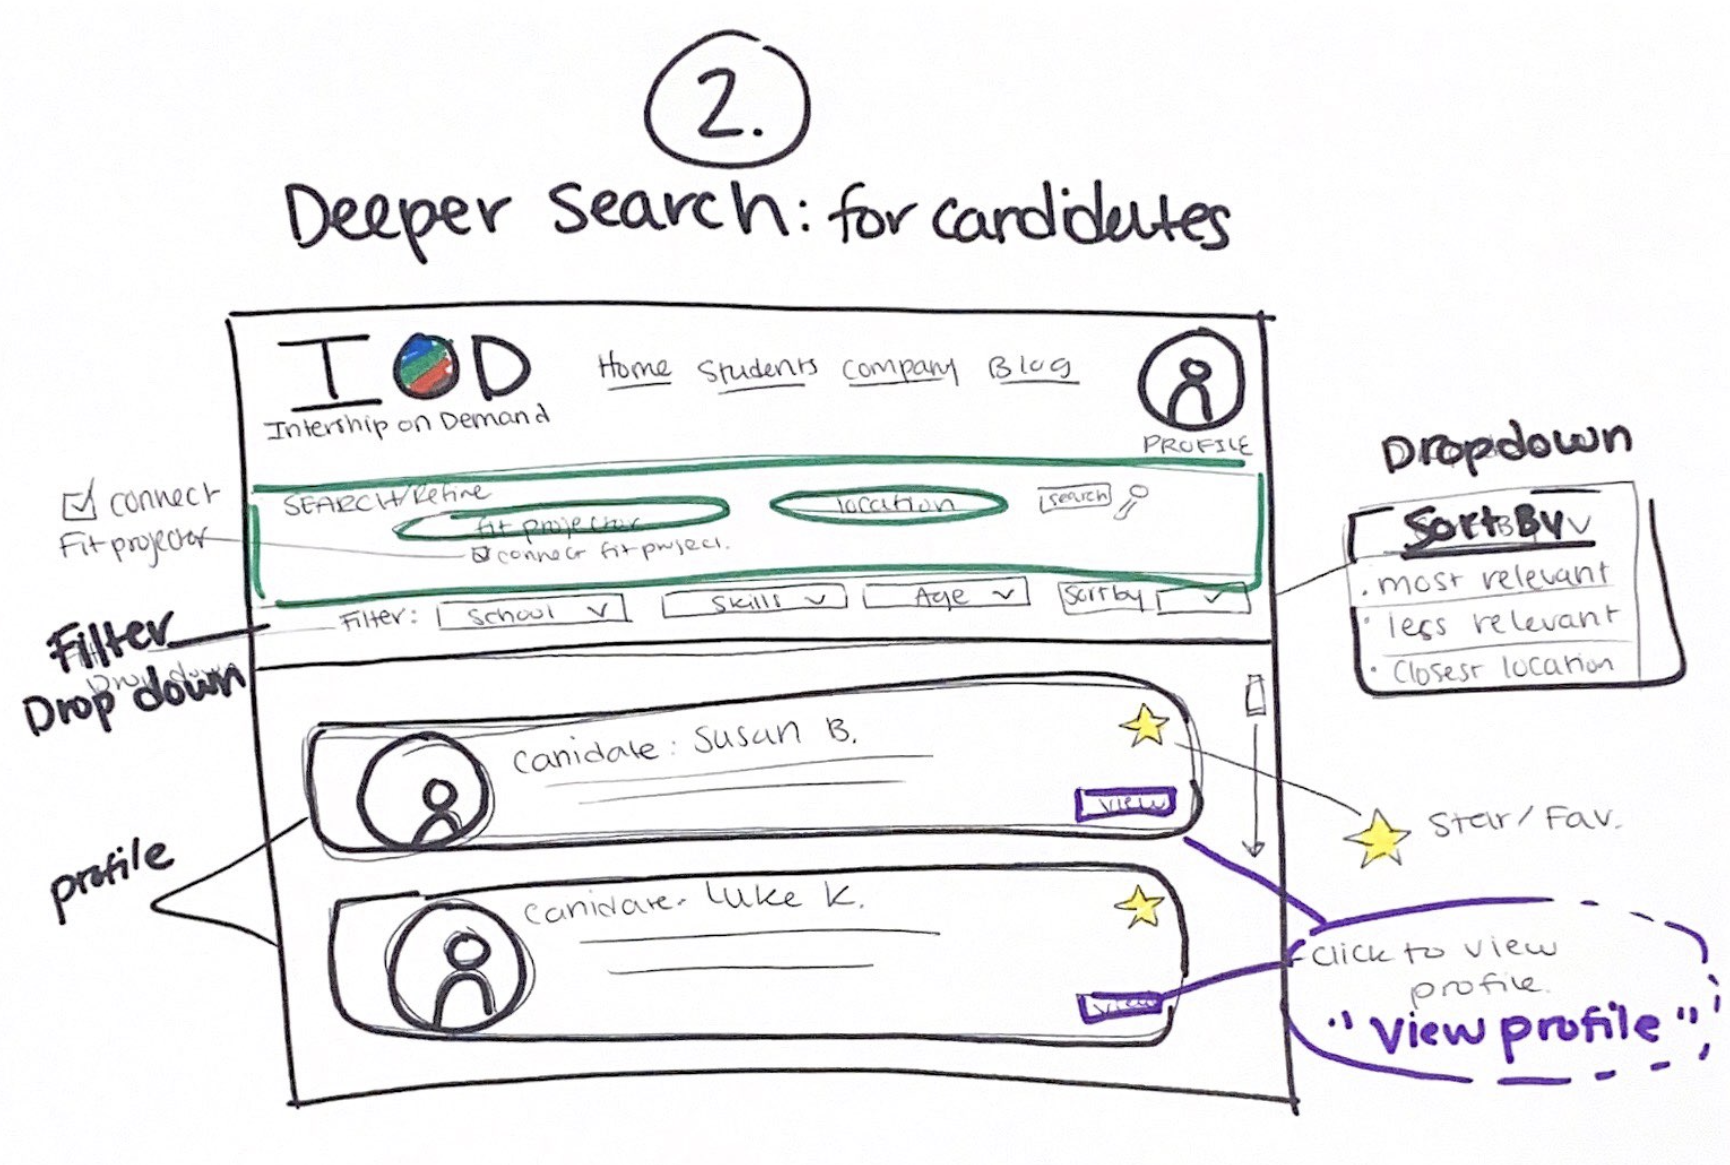 2.
Deeper Search: for candidates
I O D
Intership on Demand
Home Students Company Blog
PROFILE
SEARCH/Refine
fit projector
location
search
connect fit project.
connect
Fit projector
Filter: School Skills Age Sort by
Filter
Drop down
Dropdown
Sort By
. most relevant
· less relevant
· Closest location
Canidate: Susan B.
view
Star/Fav.
profile
Canidate- Luke K.
view
Click to view
profile.
"View profile"